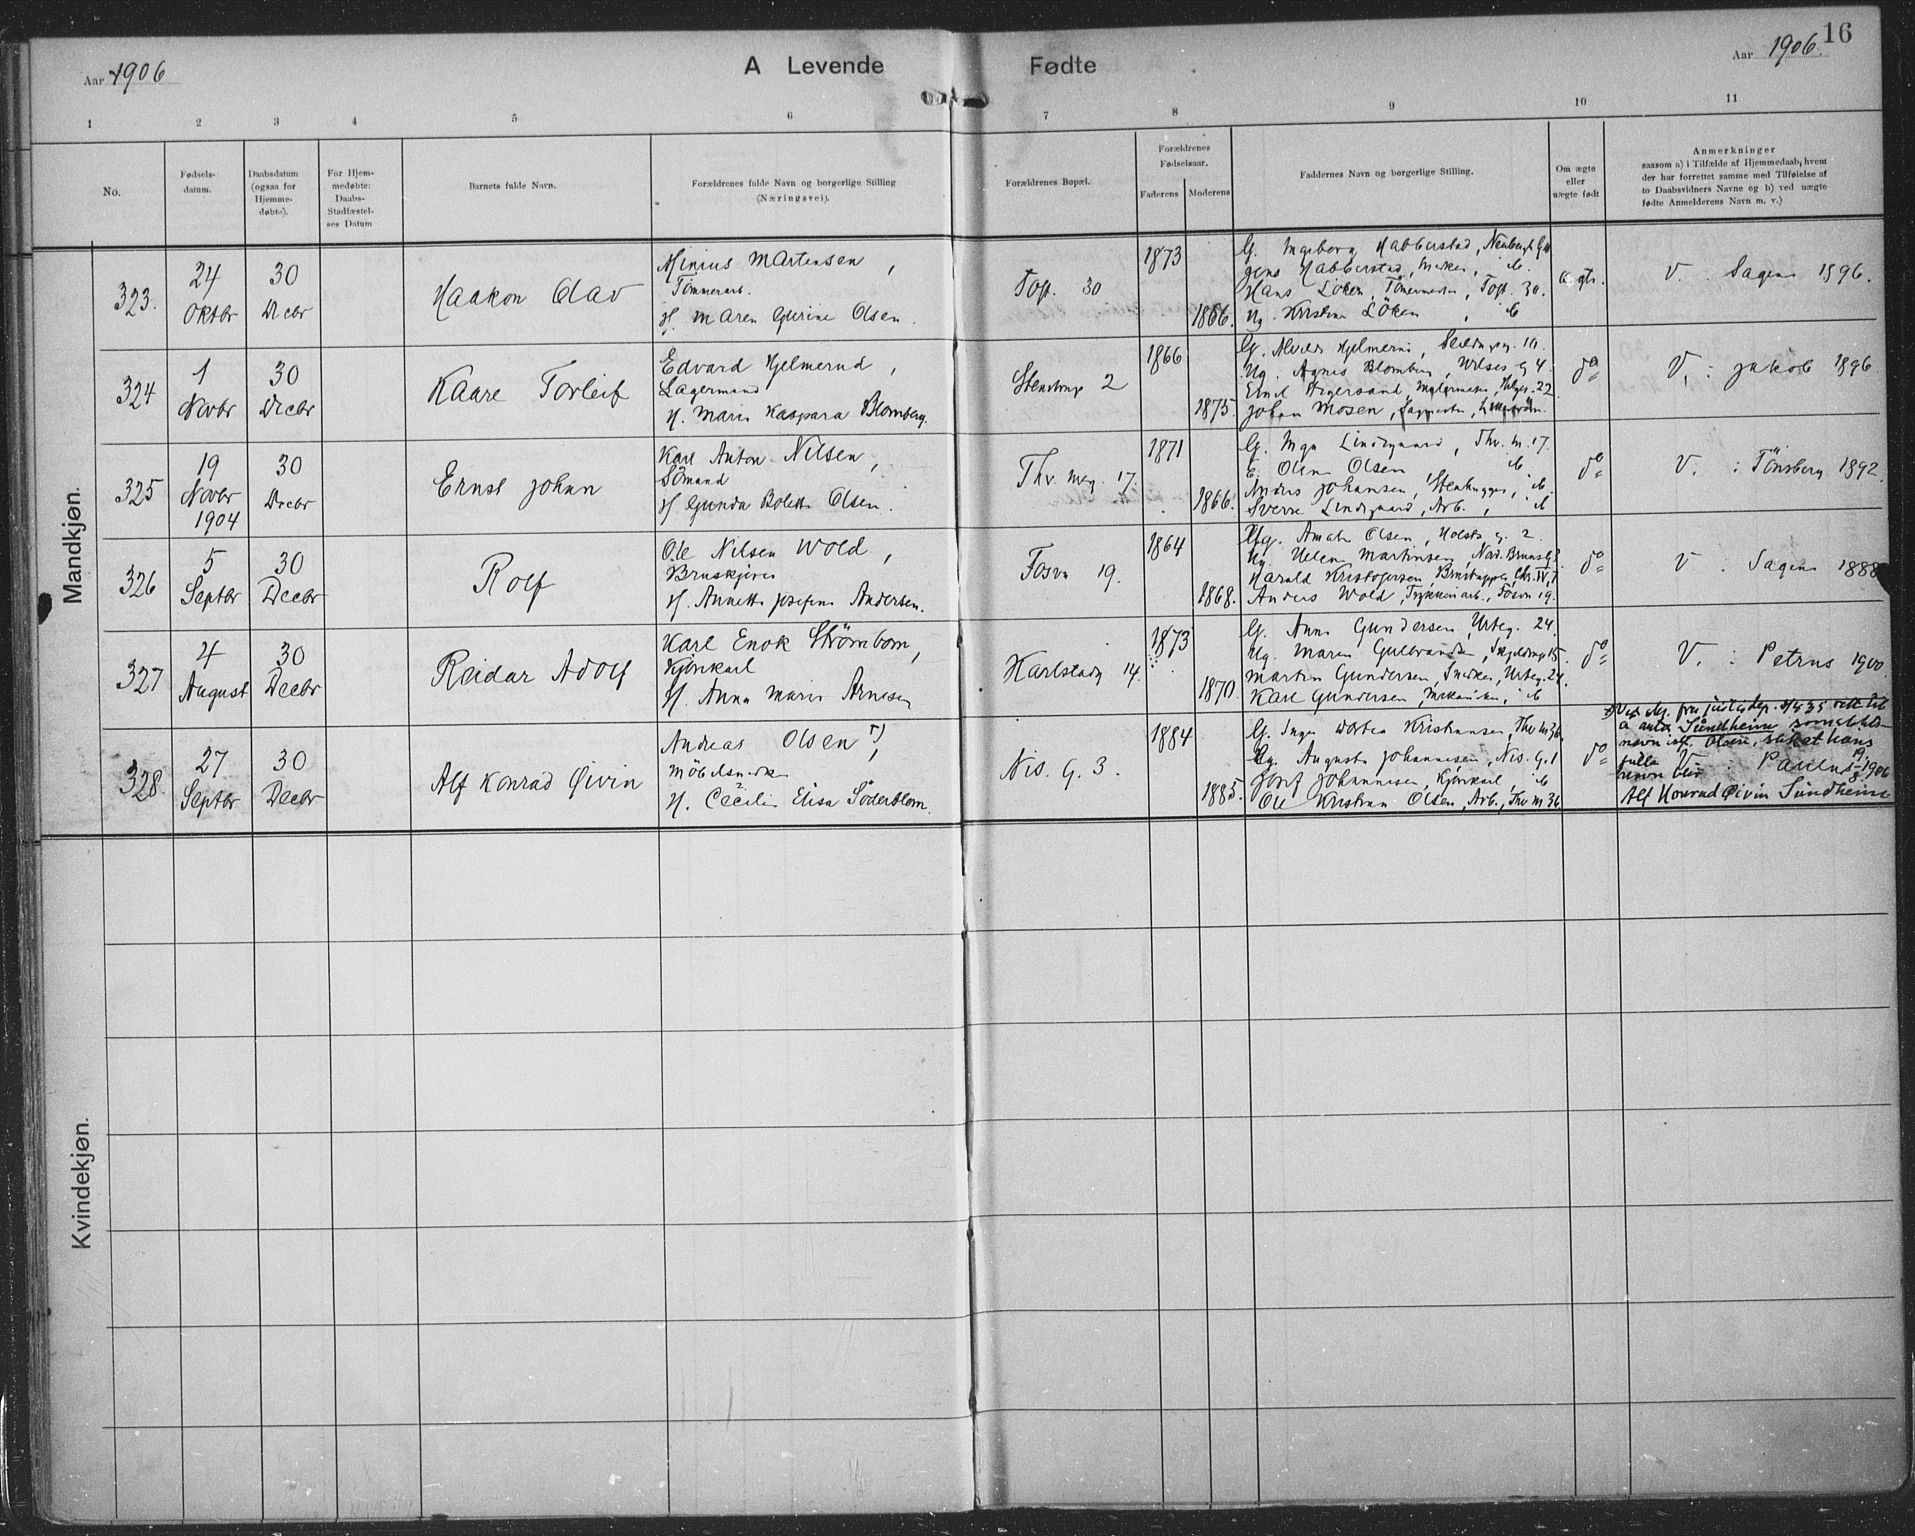 Aar 1906
A Levende Fødte
Aar 1906.
16
1 2 3 4 5 6 7 8 9 10 11
No.
Fødsels-
datum.
Daabsdatum
(ogsaa for
Hjemme-
døbte).
For Hjem-
medøbte:
Daabs-
Stadfæstel-
ses Datum
Barnets fulde Navn.
Forældrenes fulde Navn og borgerlige Stilling
(Næringsvei).
Forældrenes Bopæl.
Forældrenes
Fødselsaar.
Faderens Moderens
Faddernes Navn og borgerlige Stilling.
Om ægte
eller
uægte født
Anmerkninger
saasom a) i Tilfælde af Hjemmedaab, hvem
der har forrettet samme med Tilføielse af
to Daabsvidners Navne og b) ved uægte
fødte Anmelderens Navn m. v.)
Mandkjøn.
323.
24
Oktbr
30
Decbr
Haakon Olav
Minius Martensen,
Tømmerarb.
H. Maren Gurine Olsen.
Toft. 30
1873
1866.
G. Ingeborg Habberstad,
Jens Habberstad, ib.
Hans Löken, Toft. 30.
Ug. Kristine Löken, ib
ægte.
V. : Sagene 1896.
324
1
Novbr
30
Decbr
Kaare Torleif
Edvard Hjelmerud,
Lagermand
H. Marie Kaspara Blomberg.
Stenstrupg 2
1866
1875.
Ug. Agnes Blomberg, Wilses g 4
Johan Mosen,
do
V. : Jakob 1896
325
19
Novbr
1904
30
Decbr
Ernst Johan
Karl Anton Nilsen,
Sömand
H Gunda Bolette Olsen.
Thv. Meg. 17.
1871
1866.
G. Inga Lindgaard, Thv. M. 17.
E. Oline Olsen ib.
Anders Johansen, Stenhugger, ib.
Sverre Lindgaard, Arb., ib
do
V. : Tönsberg 1892.
326
5
Septbr
30
Decbr
Rolf
Ole Nilsen Wold,
Bruskjører
H. Annette Josefine Andersen.
Fosvn 19.
1864
1868.
Ug. Amalie Olsen, Holsts g. 2.
Ug. Helene Martinsen,
Harald Kristofersen,
Anders Wold, Fosvn 19.
do
V : Sagene 1888
327
4
August
30
Decbr
Reidar Adolf
Karl Enok Strømbom,
Kjørekarl
H. Anna Marie Arnesen
Karlstadg 14.
1873
1870.
G. Anna Gundersen, Urteg. 24.
Ug. Maren Gulbrandsen, 15.
Martin Gundersen, Snedker, Urteg. 24.
Karl Gundersen, Mekaniker, ib
do
V. : Petrus 1900.
328.
27
Septbr
30
Decbr
Alf Konrad Øivin
Andreas Olsen,
Möbelsnedker
H. Cecilie Elisa Söderblom.
Nis. G. 3.
1884
1885.
G. Inga Dortea Kristiansen, Thv M 36.
Ug. Augusta Johannesen, Nis. G. 1
Josef Johannesen, Kjørekarl, ib
Ole Kristian Olsen, Arb., Thv M 36.
do
Ved
Sundheim som slekts-
navn istf. Olsen, så at hans
fulle V : Paulus 1906
navn blir
Alf Konrad Øivin Sundheim
Kvindekjøn.